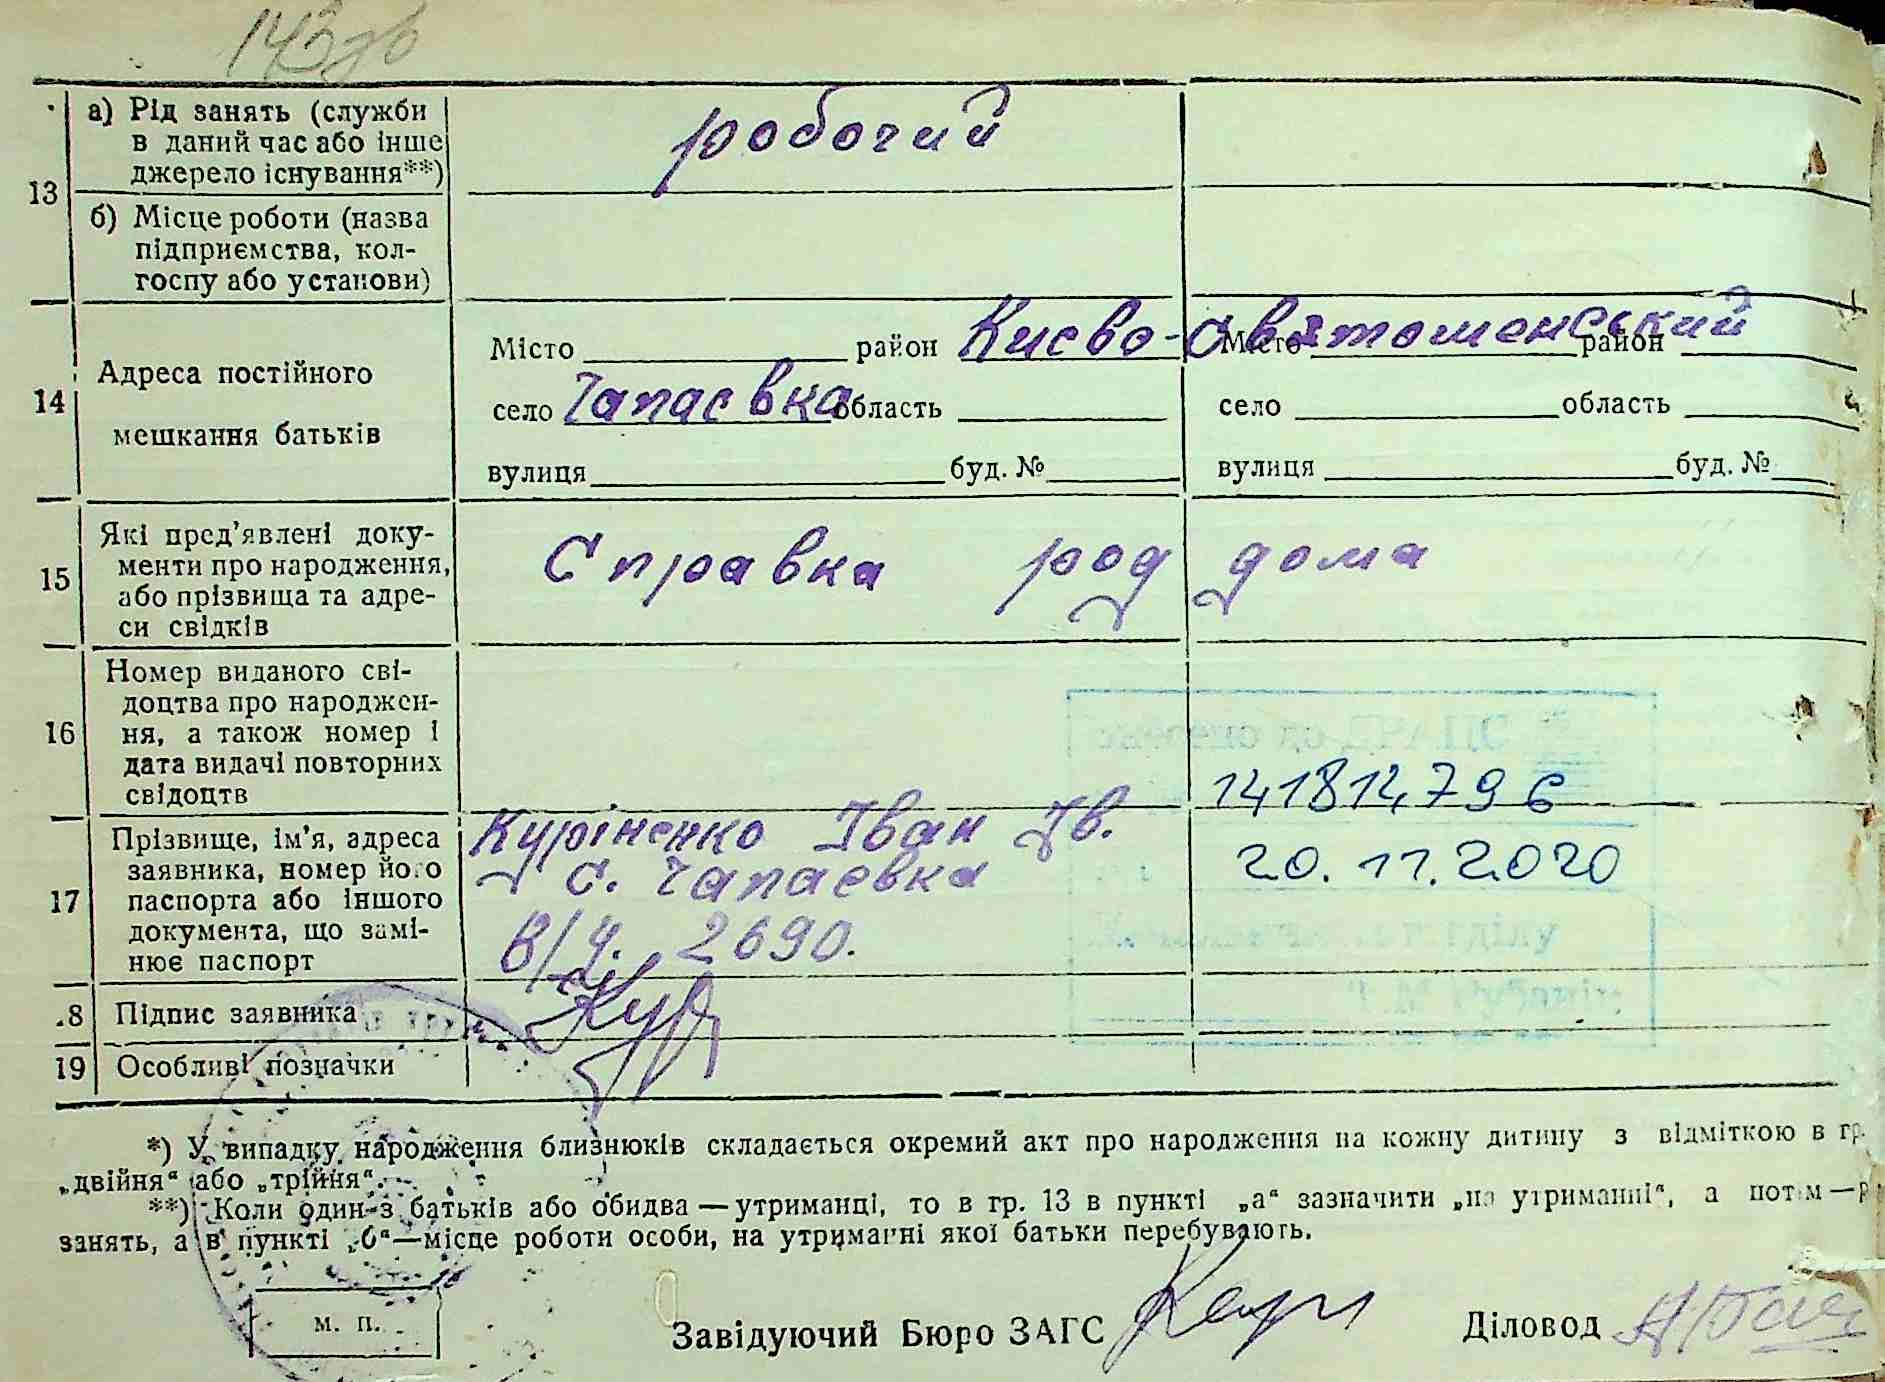 13
а) Рід занять (служби
в даний час або інше
джерело існування**)
робочий
б) Місце роботи (назва
підприємства, кол-
госпу або установи)
14
Адреса постійного
мешкання батьків
Місто район Києво-Святошенський
село Чапаєвка область
вулиця буд. №
Місто район
село область
вулиця буд. №
15
Які пред’явлені доку-
менти про народження,
або прізвища та адре-
си свідків
Справка род дома
16
Номер виданого сві-
доцтва про народжен-
ня, а також номер і
дата видачі повторних
свідоцтв
141814796
20.11.2020
17
Прізвище, ім’я, адреса
заявника, номер його
паспорта або іншого
документа, що замі-
нює паспорт
Куріненко Іван Ів.
с. Чапаєвка
в/ч. 2690.
18 Підпис заявника
Кур
19 Особливі позначки
*) У випадку народження близнюків складається окремий акт про народження на кожну дитину з відміткою в гр.
„двійня“ або „трійня“.
**) Коли один з батьків або обидва — утриманці, то в гр. 13 в пункті „а“ зазначити „на утриманні“, а потім —
занять, а в пункті „б“—місце роботи особи, на утриманні якої батьки перебувають.
м. п.
Завідуючий Бюро ЗАГС
Діловод